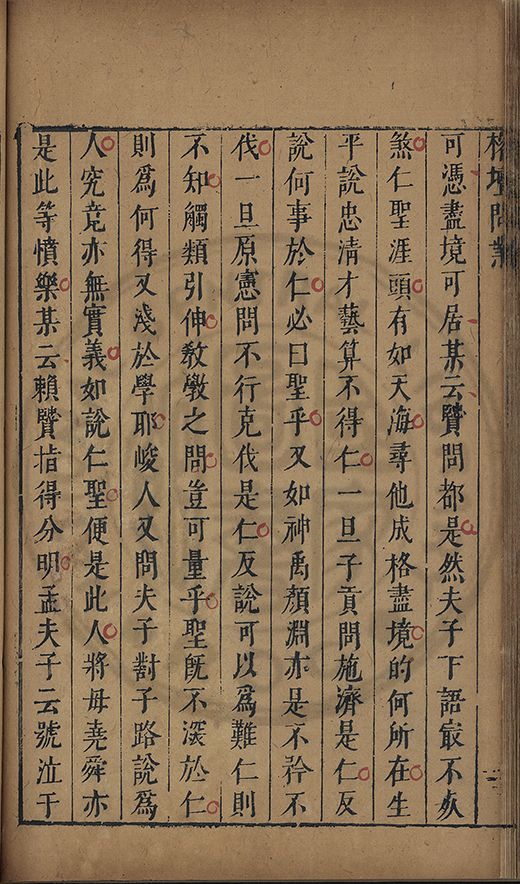 榕壇問業
可憑盡境可居某云贒問都是然夫子下語㝡不
煞仁聖涯頭有如天海尋他成格盡境的何所在生
平說忠清才藝算不得仁一旦子貢問施濟是仁反
說何事於仁必曰聖乎又如神禹顏淵亦是不矜不
伐一旦原憲問不行克伐是仁反說可以爲難仁則
不知觸類引伸敎斆之問豈可量乎聖既不深於仁
則爲何得又淺於學耶峻人又問夫子對子路說爲
人究竟亦無實義如說仁聖便是此人將毋堯舜亦
是此等憤樂某云賴贒指得分明孟夫子云號泣于